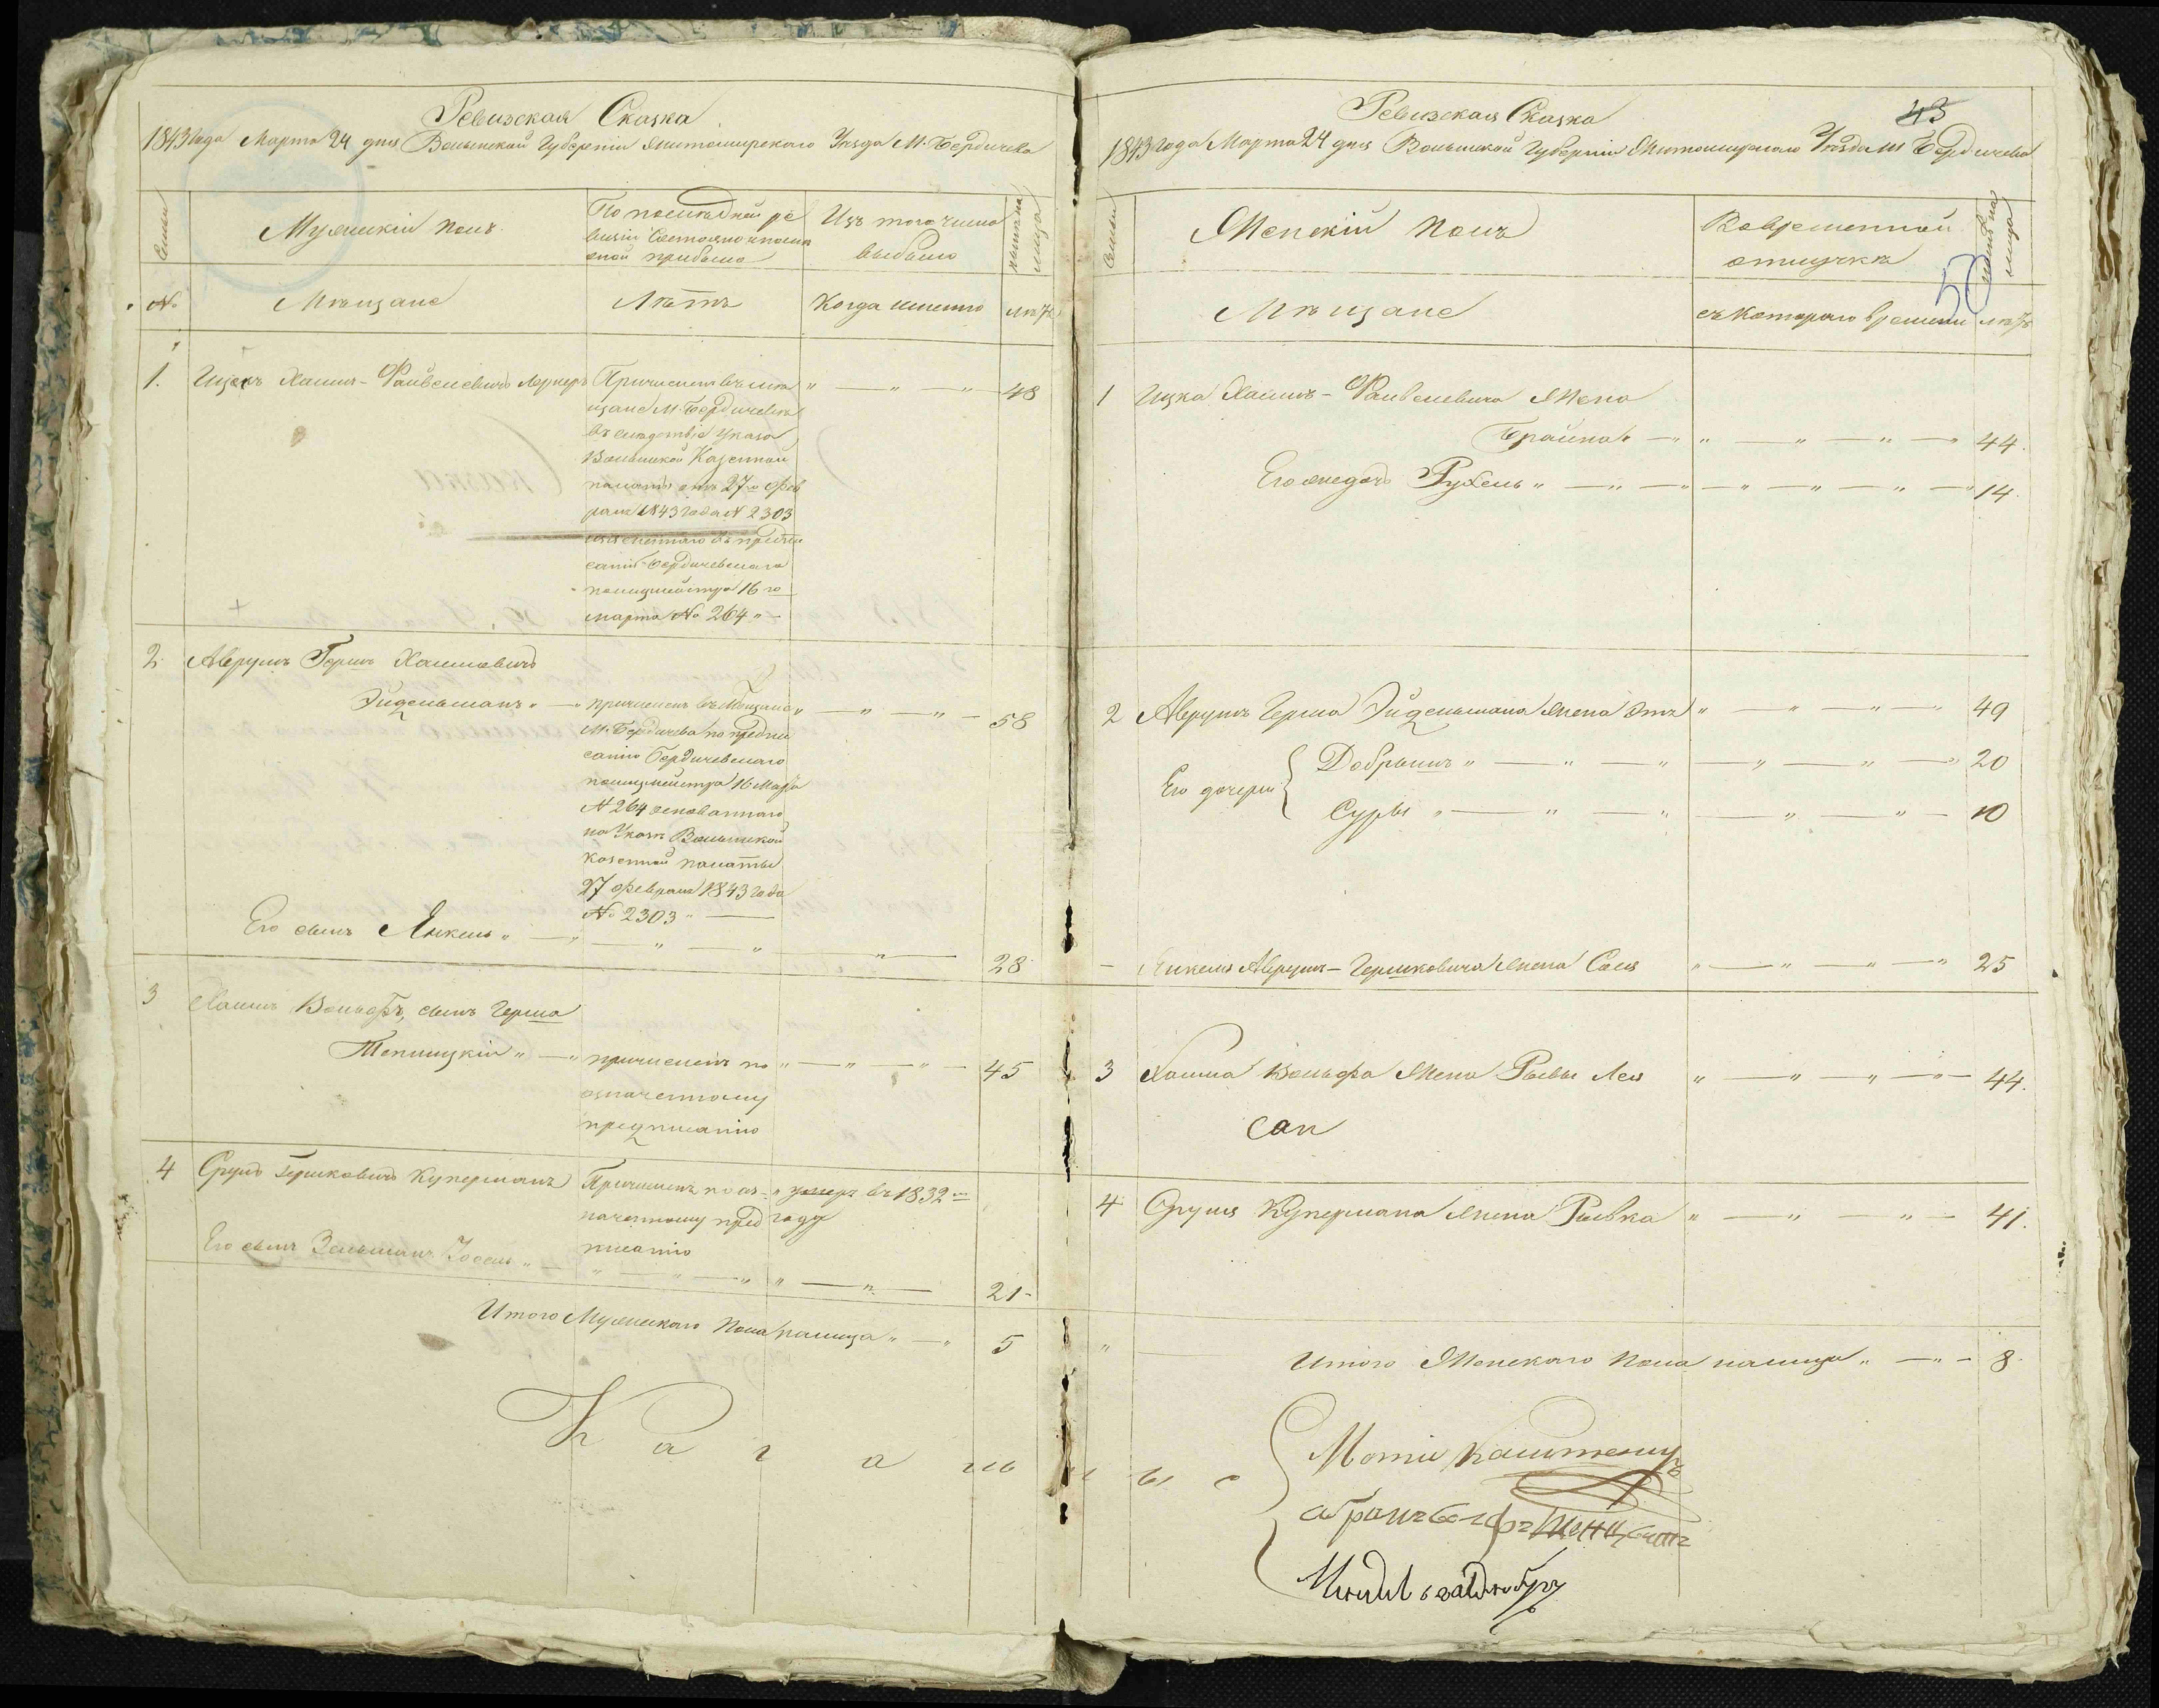 Ревизская Сказка
1843 года Марта 24 дня Волынской Губернии Житомирского Уезда М. Бердичева
Семьи
Мужеский полъ
По последней ре
визии состояло и после
оной прибыло
Изъ того числа
выбыло
ныне на
лицо
№
Мещане
Летъ
Когда именно
летъ
1. Ицекъ Хаимъ-Файвелевичъ Лернеръ
Причисленъ въ ме
щане М. Бердичева
въ следствие указа
Волынской Казенной
палаты отъ 27го Фев
раля 1843 года № 2303
въ предпи
сании Бердичевского
полицмейстра 16го
марта № 264 " —
" — " — " — 48
2. Аврумъ Гершъ Хаимовичъ
Эйдельманъ " — "
причисленъ въ мещане
М. Бердичева по предпи
санию Бердичевского
полицмейстра 16 Марта
№ 264 основанного
на Указе Волынской
казенной палаты
27 февраля 1843 года
№ 2303 " —
" — " — " — 58
Его сынъ Янкель " — " — " — " " — 28
3 Хаимъ Вольфъ, сынъ Герша
Теплицкий " — " причисленъ по " — " — " — 45
означенному
предписанию
4 Сруль Гершковичъ Куперманъ
Причисленъ по оз-
наченному пред
писанию
умеръ въ 1832 —
году
Его сынъ Зельманъ Иосель " — " — " — " " — " — 21 -
Итого Мужеского пола налицо " — " 5
К а г а л ь
Ревизская Сказка
43
1843 года Марта 24 дня Волынской Губернии Житомирского Уезда М Бердичева
Семьи
Женский полъ
Во временной
отлучке
ныне на
лицо
50
Мещане
съ которого времени
летъ
1 Ицка Хаимъ-Файвелевича Жена
Брайна — " " — " — " — " 44.
Его же дочь Рухель " — " — " — " — " — " — " 14.
2 Аврумъ Герша Эйдельмана жена Этя " — " — " — " 49
Его дочери { Добрышъ " — " — " — " — " — " 20
Суры " — " — " — " — " — 10
— Янкеля Аврумъ-Гершковича жена Сося " — " — " — " 25
3 Хаима Вольфа Жена Рывы Лея " — " — " — " — 44.
4 Сруля Купермана жена Рывка " — " — " — 41.
" Итого Женского пола налицо " — " — 8.
н ы е